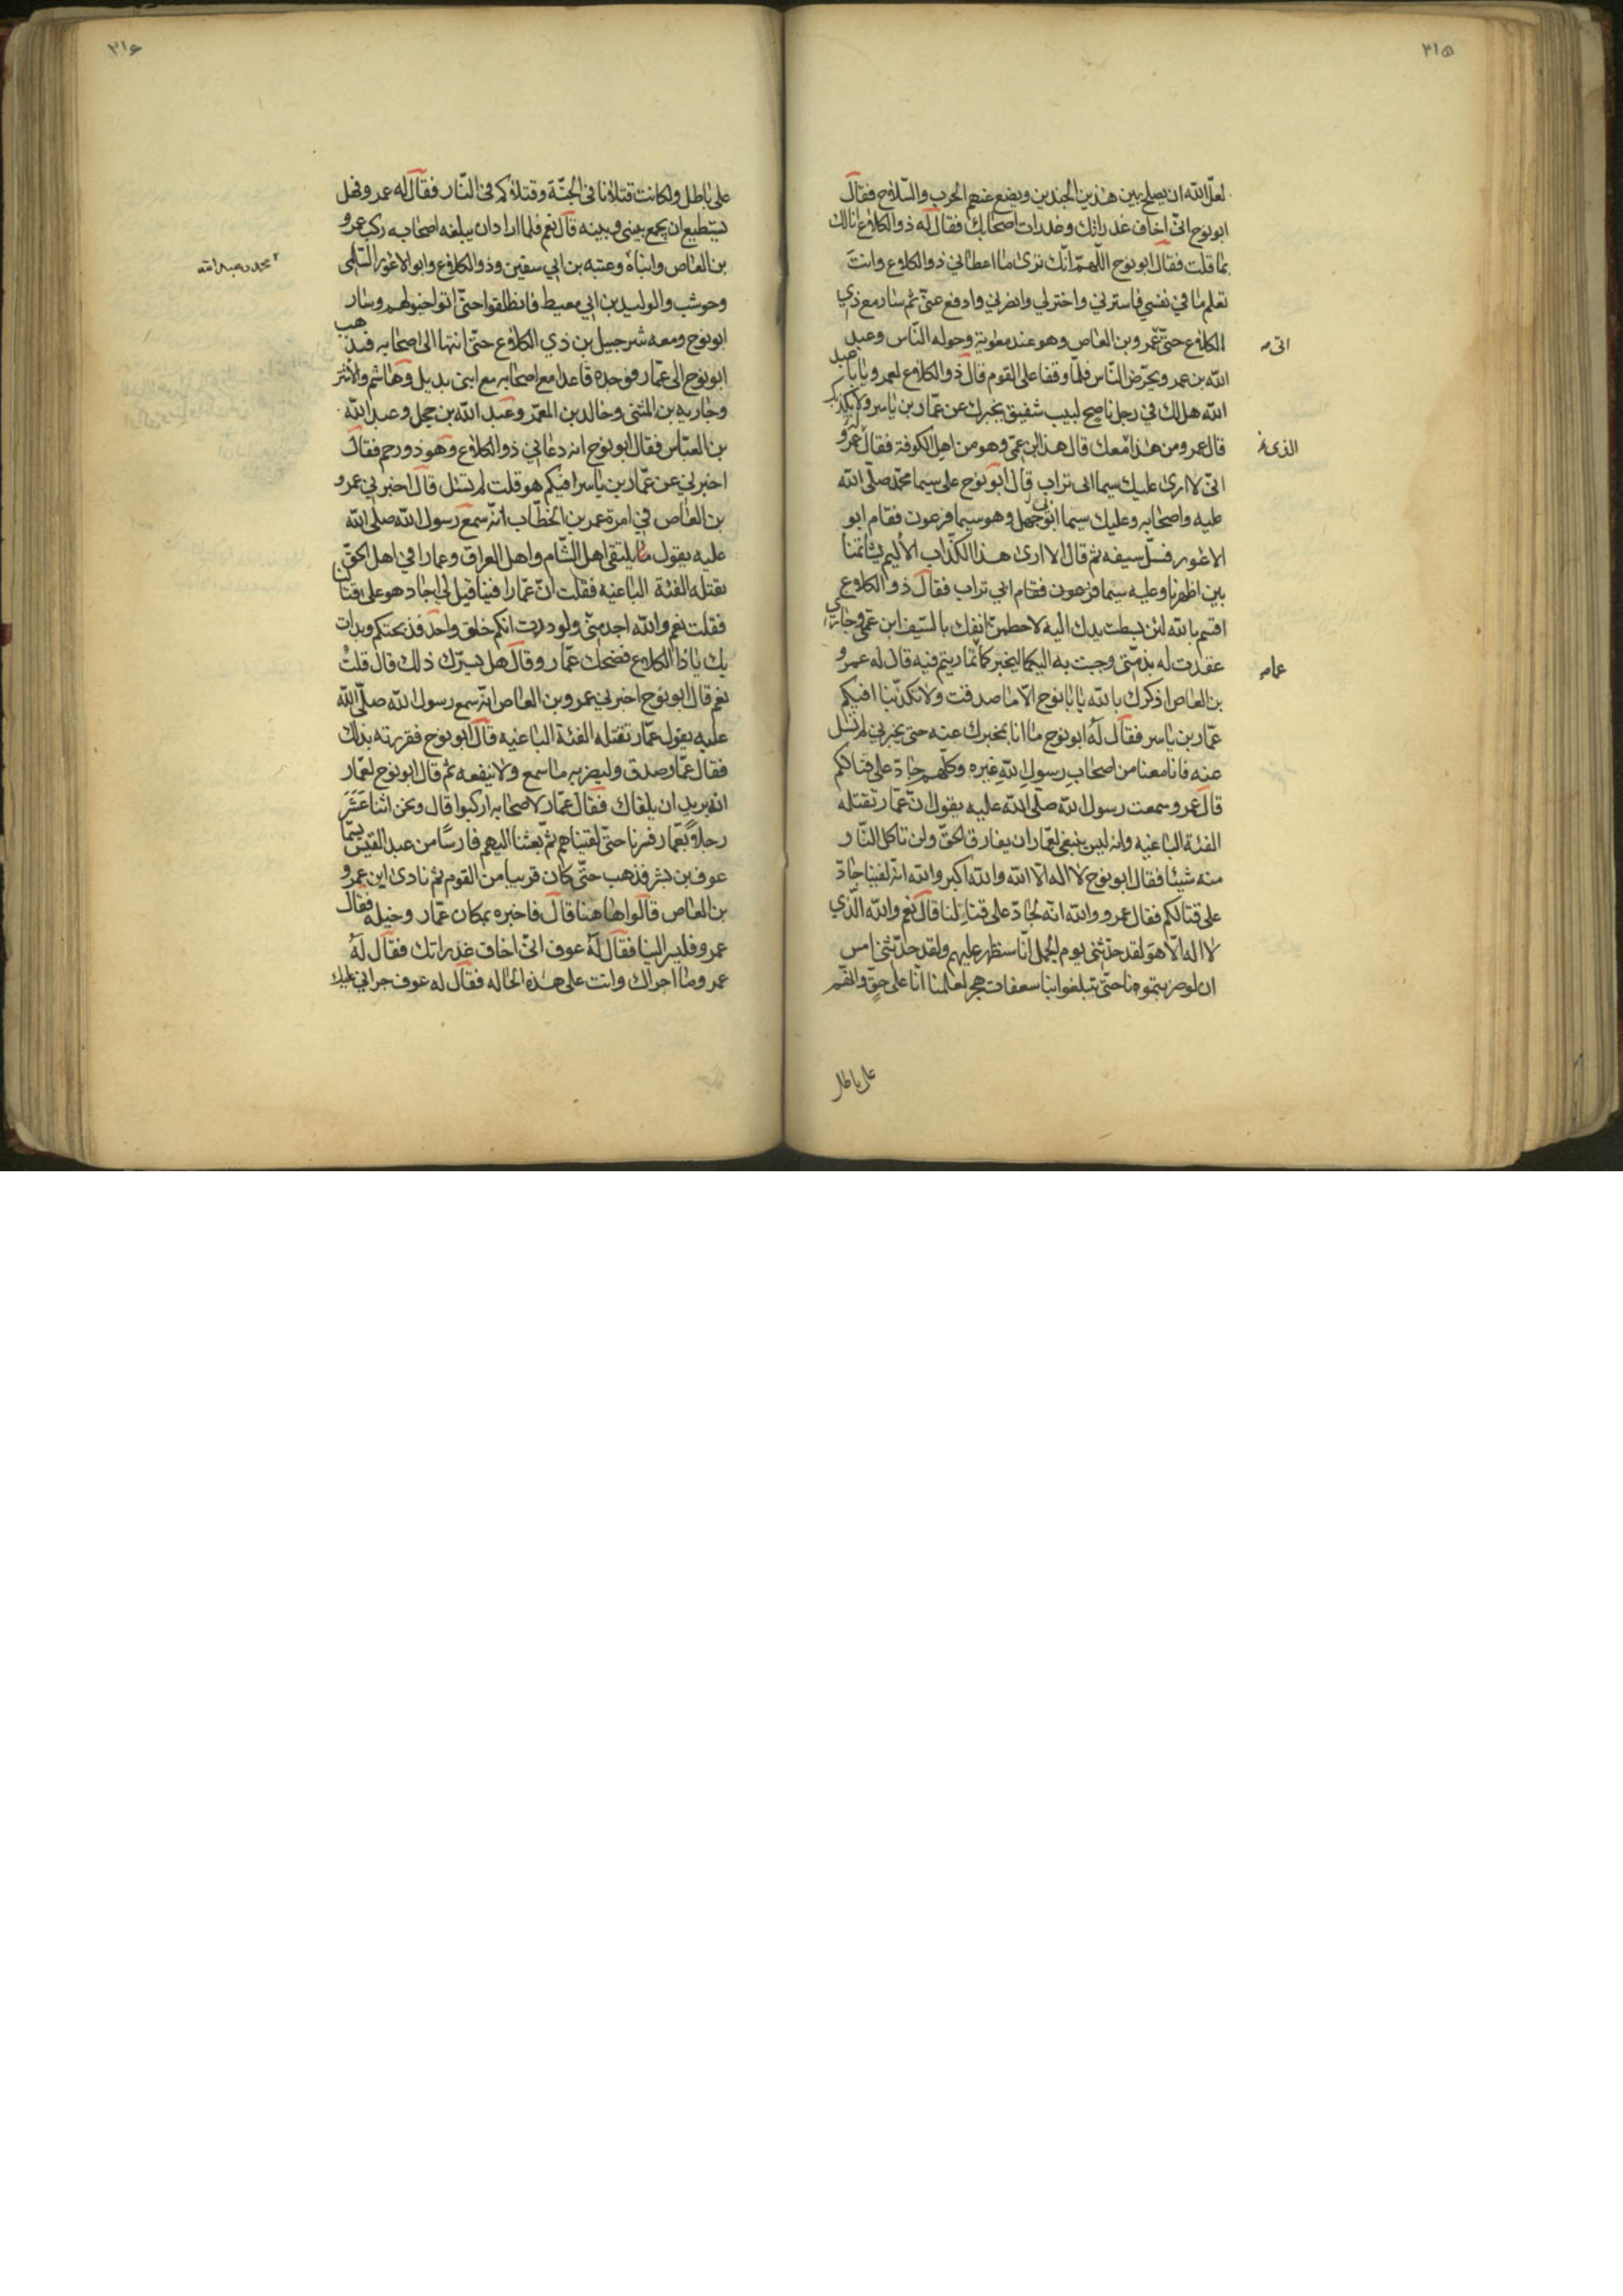 ٣١۵
لعلّ الله ان يصلح بين هذين الجندين ويضع عنهم الحرب والسّلاح فقال
ابو نوح انّي اخاف غدراتك وغدرات اصحابك فقال له ذو الكلاع انا لك
بما قلت فقال ابو نوح اللّهمّ انّك ترى ما اعطاني ذو الكلاع وانت
تعلم ما في نفسي فاسترني واخترلي وانصرني وادفع عنّي ثم سار مع ذي
الكلاع حتّى عمرو بن العاص وهو عند معوية وحوله النّاس وعبد
اتى
الله بن عمر ويحرّض النّاس فلمّا وقفا على القوم قال ذو الكلاع لعمرو يا با عبد
الله هل لك في رجل ناصح لبيب شفيق يخبرك عن عمّار بن ياسر ولا يكذبك
قال عمرو ومن هذا معك قال هذا ابن عمّي وهو من اهل الكوفة فقال له عمرو
الذى
انّي لا ارى عليك سيما ابى تراب قال ابو نوح على سيما محمّد صلّى الله
عليه واصحابه وعليك سيما ابى جهل وهو سيما فرعون فقام ابو
الاعور فسلّ سيفه ثم قال الا ارى هذا الكذّاب الأليم يشاتمنا
بين اظهرنا وعليه سيما فرعون فقام ابي تراب فقال ذو الكلاع
اقسم بالله لئن بسطت يدك اليه لاحطمنّ انفك بالسّيف ابن عمّي وجارى
عقدت له بذمّتي وجبت به اليكما ليخبركما تماريتم فيه قال له عمرو
عما
بن العاص اذكرك بالله يا با نوح الّا ما صدقت ولا تكذبنا افيكم
عمّار بن ياسر فقال له ابو نوح ما انا بمخبرك عنه حتى يخبرني لم تسئل
عنه فانا معنا من اصحاب رسول الله غيره وكلّهم جادّ على قتالكم
قال عمرو سمعت رسول الله صلّى الله عليه يقول انّ عمّار تقتله
الفئة الباغيه وانه ليس ينبغي لعمّار ان يفارق الحقّ ولن تاكل النّار
منه شيئا فقال ابو نوح لا اله الا الله والله اكبر والله انه لفينا جادّ
على قتالكم فقال عمرو والله انّه لجادّ على قتالنا قال نعم والله الّذي
لا اله الّا هو لقد حدّثني يوم الجمل انّا سنظهر عليهم ولقد حدّثني امس
ان لو ضربتمونا حتّى تبلغوا بنا سعفات هجر لعلمنا انّا على حقّ وانّهم
على باطل
٣١۶
على باطل ولكانت قتلانا في الجنّة وقتلاكم في النّار فقال له عمرو فهل
تستطيع ان يجمع بيني وبينه قال نعم فلما اراد ان يبلغه اصحابه ركب عمرو
بن العاص وابناه وعتبه بن ابي سفين وذو الكلاع وابو الاعور السّلمي
محمد وعبد الله
وحوشب والوليد بن ابي معيط فانطلقوا حتّى اتوا خيولهم وسار
ابو نوح ومعه شرحبيل بن ذي الكلاع حتّى انتها الى اصحابه فذهب
ابو نوح الى عمّار فوجده قاعدا مع اصحابه مع ابنى بديل وهاشم والاشتر
وجاريه بن المثنى وخالد بن المعمّر وعبد الله بن حجل وعبد الله
بن العبّاس فقال ابو نوح انه دعاني ذو الكلاع وهو ذو رحم فقال
اخبرني عن عمّار بن ياسر افيكم هو قلت لم تسئل قال اخبرني عمرو
بن العاص في امرة عمر بن الخطّاب انّه سمع رسول الله صلّى الله
عليه يقول يلتقي اهل الشّام واهل العراق وعمارا في اهل الحقّ
تقتله الفئة الباغيه فقلت انّ عمّارا فينا قيل لي اجاد هو على قتالنا
فقلت نعم والله اجد منّي ولو ددت انكم خلق واحد فذبحتكم وبدات
بك يا ذا الكلاع فضحك عمّار وقال هل يسرّك ذلك قال قلت
نعم قال ابو نوح اخبرني عمرو بن العاص انّه سمع رسول الله صلّى الله
عليه يقول عمّار تقتله الفئة الباغيه قال ابو نوح فقررته بذلك
فقال عمّار صدق وليضربه ما سمع ولا ينفعه ثم قال ابو نوح لعمّار
انه يريد ان يلقاك فقال عمّار لاصحابه اركبوا قال ونحن اثنا عشر
رجلا بعمّار فسرنا حتّى لقيناهم ثمّ بعثنا اليهم فارسا من عبد القيس يسمّا
عوف بن بشر فذهب حتّى كان قريبا من القوم ثم نادى اين عمرو
بن العاص قالوا هاهنا قال فاخبره بمكان عمّار وخيله فقال
عمرو فليسر الينا فقال له عوف انّي اخاف غدراتك فقال له
عمرو ما اجراك وانت على هذه الحاله فقال له عوف جراني عليك